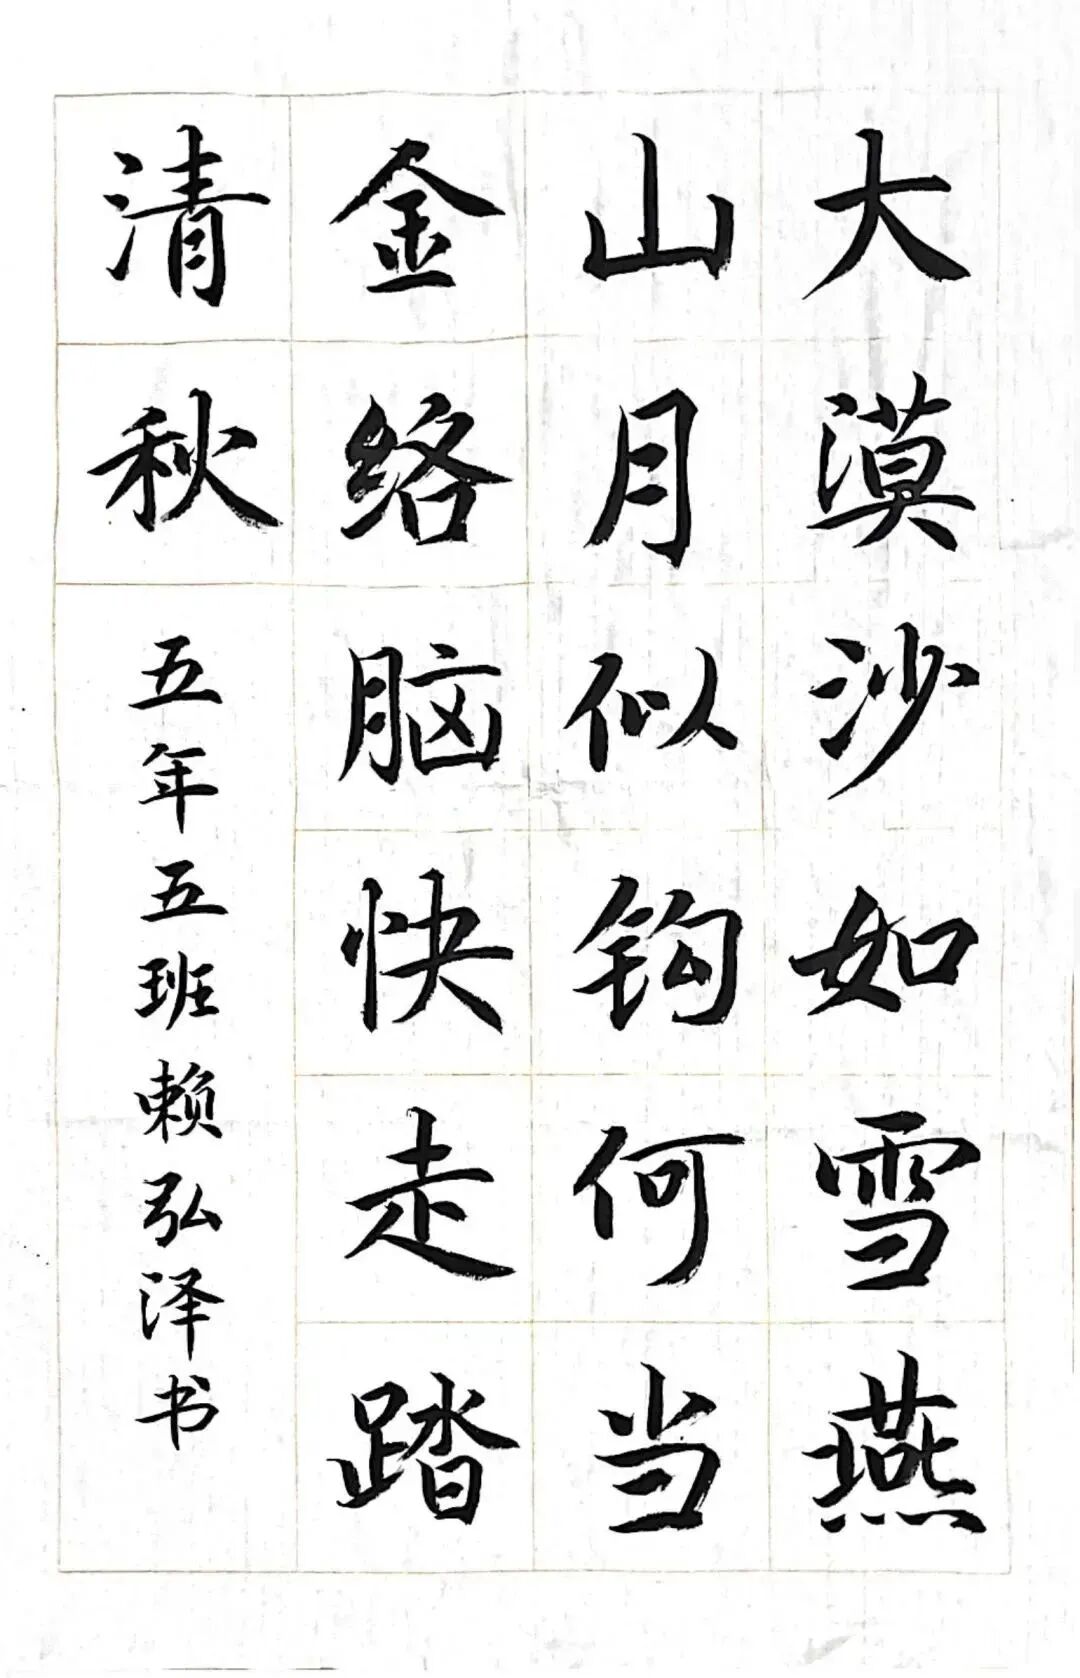 大漠沙如雪燕
山月似钩何当
金络脑快走踏
清秋
五年五班赖弘泽书